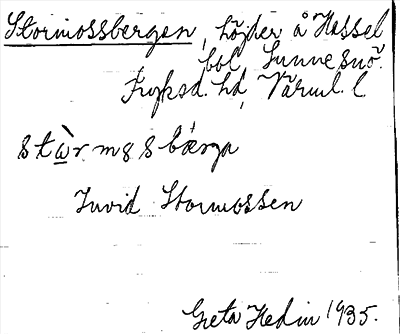 Stormossbergen, höjder å Hassel
bol, Sunne snō.
Fryksd. hd, Värml. l
Invid Stormossen
Greta Hedin 1935.